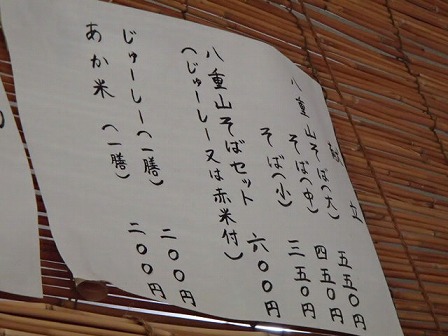 献立
八重山そば(大) 五五〇円
そば(中) 四五〇円
そば(小) 三五〇円
八重山そばセット 六〇〇円
(じゅーしー又は赤米付)
じゅーしー(一膳) 二〇〇円
あか米 (一膳) 二〇〇円